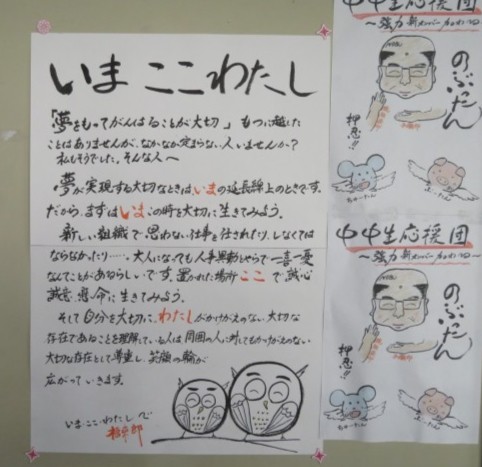 いま ここ わたし
「夢をもってがんばることが大切」 もつに越した
ことはありませんが、なかなか定まらない人いませんか?
私もそうでした。そんな人へ
夢が実現する大切なときは、いまの延長線上のときです。
だから、まずはいまこの時を大切に生きてみよう。
新しい組織で思わない仕事を任されたり、しなくては
ならなかったり……大人になっても人事異動とやらで一喜一憂
なんてことがあるらしいです。置かれた場所ここで、誠心
誠意・懸命に生きてみよう。
そして自分を大切に、わたしがかけがえのない大切な
存在であることを理解している人は周囲の人に対してもかけがえのない
大切な存在として尊重し、笑顔の輪が
広がっていきます。
いま ここ わたし で
中中生応援団
〜強力新メンバー加わる〜
のぶたん
押忍!!
ちゅーたん
ぶーたん
中中生応援団
〜強力新メンバー加わる〜
のぶたん
押忍!!
ちゅーたん
ぶーたん